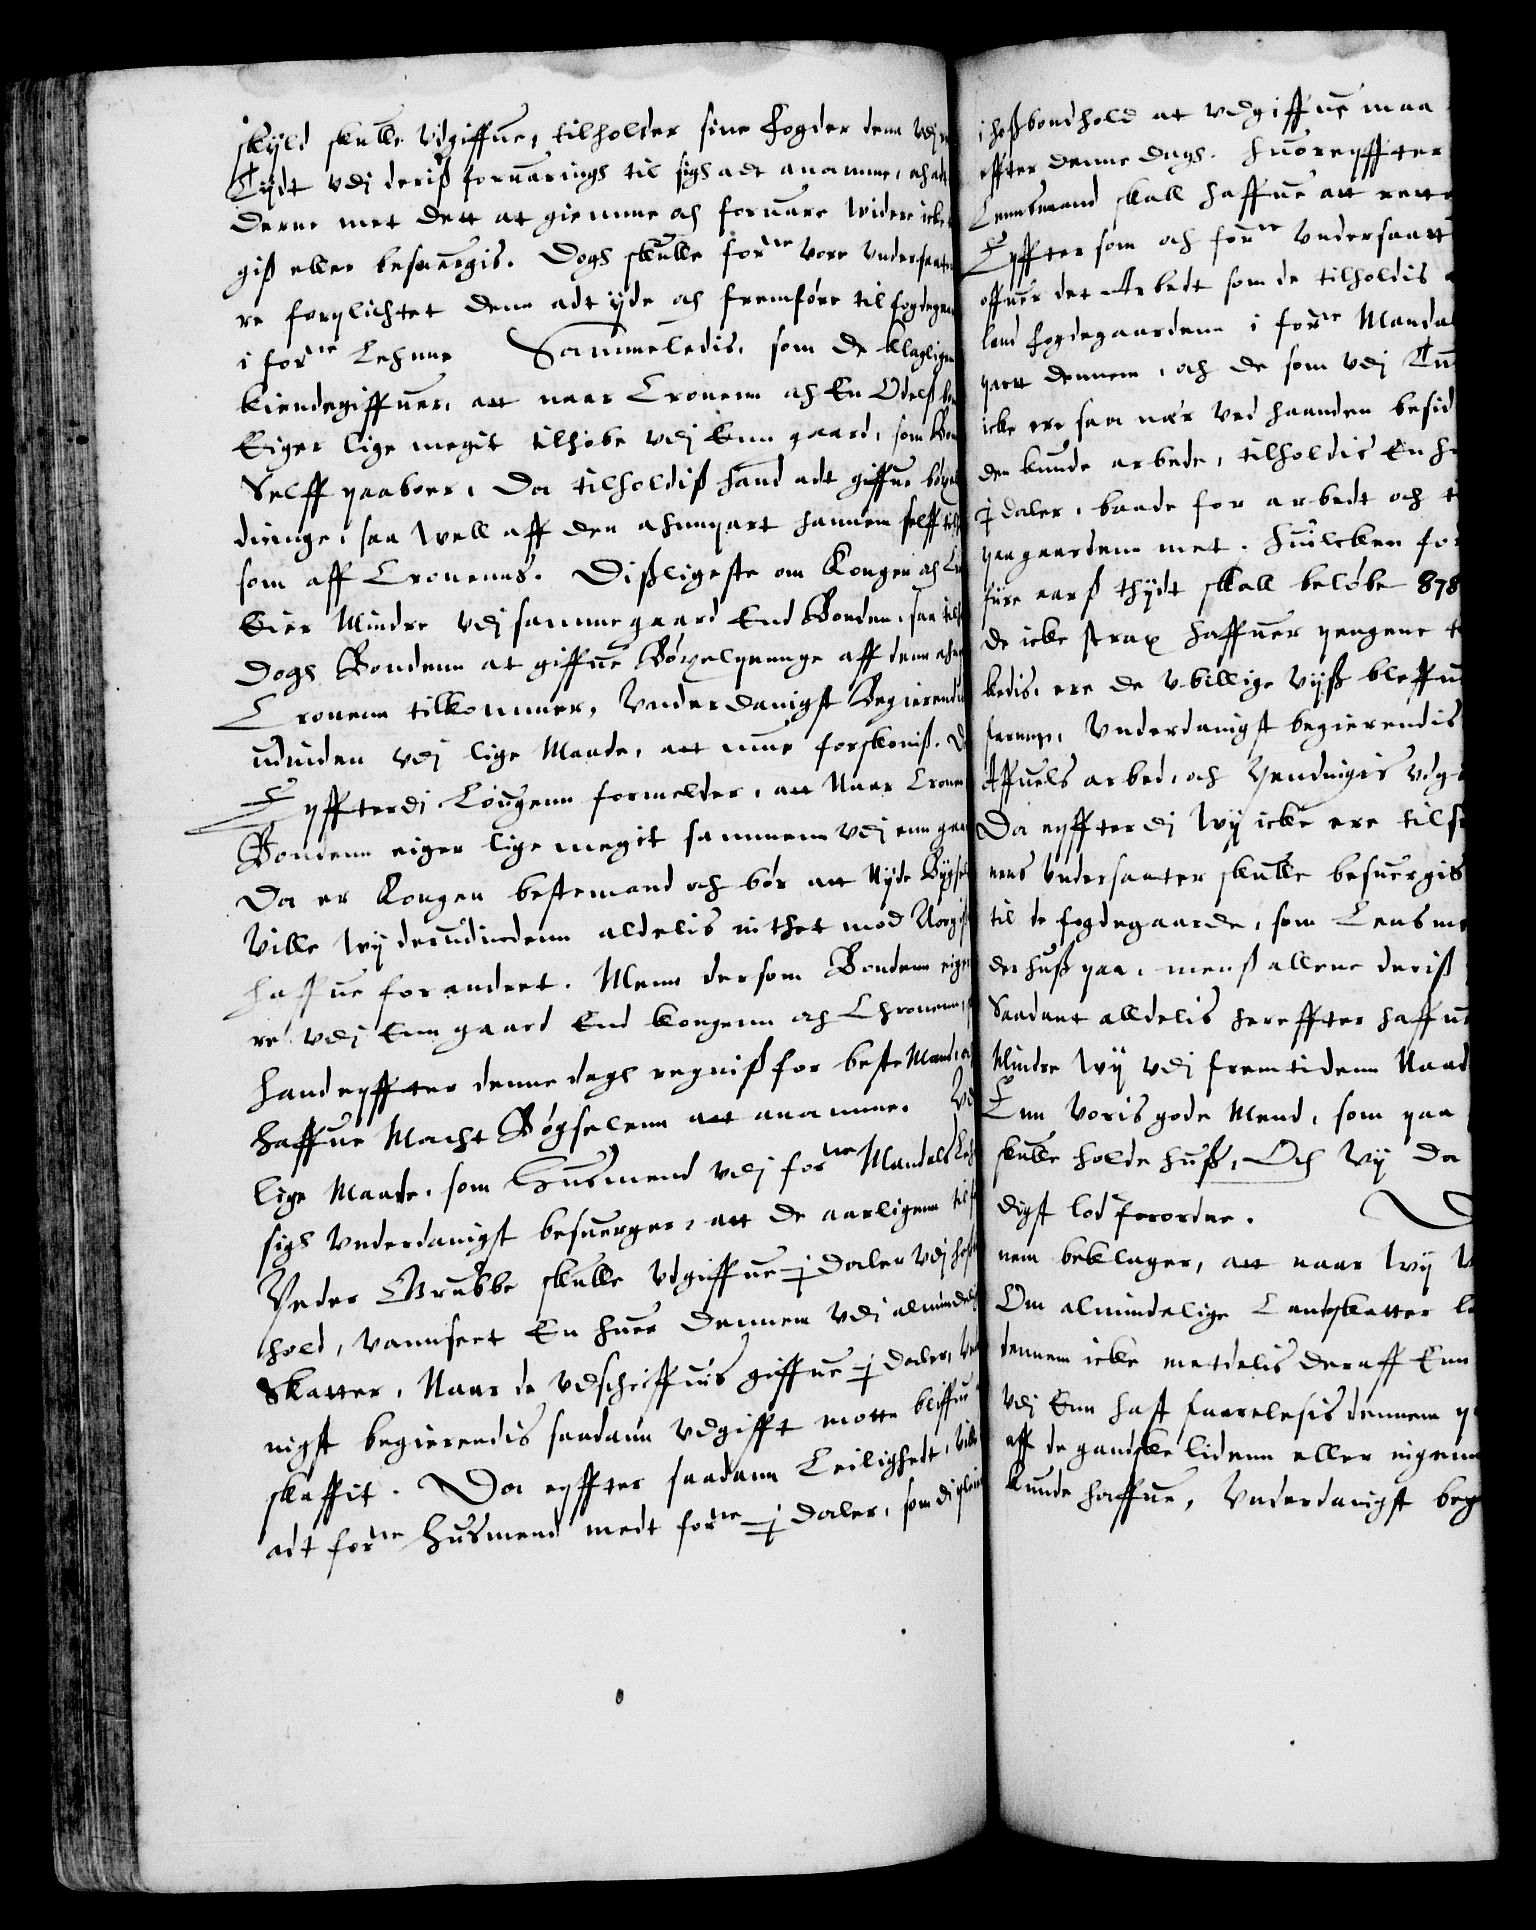 skyld skulle Udgiffue, tilholder sine Fogder dem udj
Tydt udj deris foruarings til sigh adt anamme, och
derne met dett at giemme och foruare widere icke
giß eller besuergis. Dogh skulle forne vore Undersaate
re forplichtet denn adt yde och fremføre til fogdegaar
i forne Lehnne Sammeledis, som de klagligen
kiendegiffuer, att naar Cronenn och En Odelß bon
Eiger lige megit tilhobe udj Enn gaard, som Bon
Selff paaboer, Da tilholdiß hand adt giffue bøxel
dinge, saa well aff den ahnpart hannem selff til
som aff Cronenns. Dißligeste om Kongen och
Eier Mindre udj samme gaard End Bonden, saa til
dogh Bondenn at giffue Bøxelpenge aff denn
Cronenn tilkommer, Underdanigst Begierendis
udinden udj lige Maade, att mue forskoniß. D
Epffterdj Lougenn formelder, att Naar Cronen
Bondenn eiger lige megit sammenn udj enn gaar
Da er Kongen bestemand och bør att Nyde Bygsel
Ville wy derudindenn aldelis inthet mod Norgis
haffue forandret. Menn dersom Bondenn eiger
re udj Enn gaard End kongenn och Chronenn,
hand epffter denne dagh regniß for beste Mand, och
haffue Macht Bøgselenn att anamme. Ud
lige Maade, som Husmend udj forne Mandals Leh
sigh Underdanigst besuerger, att de aarligenn til
Peder Grubbe skulle Udgiffue j daler udj hoß
hold, uannseet En huer dennem udj almindelig
Skatter, Naar de udschriffuis giffue j daler, Un
nigst begierendis saadann Udgifft motte bliffue
skaffit. Da epffter saadann Leilighedt, ville
adt forne Husmend medt forne j daler, som di pleie
i hoßbondhold at udgiffue maa
effter denne dagh. Huorepffter
Lennsmand skall haffue att rette
Epffter som och forne Undersaatt
offuer det Arbedt som de tilholdis
land fogdegaardene i forne Mandal
partt dennem, och de som udj
icke ere saa nær ved haanden besid
den kunde arbede, tilholdis En hu
j daler, baade for arbedt och
paa gaardenn met. Huilcken for
fire aarß thydt skall beløbe 878
de icke strax haffuer pengene
ledis, ere de ubillige vyß bleffue
Underdanigst begierendis
Affuels arbed, och Pendingis udg
Da epffterdj wy icke ere tils
nens Undersaater skulle besuergis
til de fogdegaarde, som Lensme
der huß paa, menß allene deriß
Saadant alldelis hereffter haffue
Mindre wy udj fremtidenn Naad
Enn Voris gode Mend, som paa
skulle holde huß, Och Vy da
digst lod forordne.
nem beklager, att naar wy
Om almindelige Landskatter
dennem icke metdelis deraff Enn
udj Enn hast faarelesis dennem
aff de gandske lidenn eller ingenn
kunde haffue, Underdanigst beg